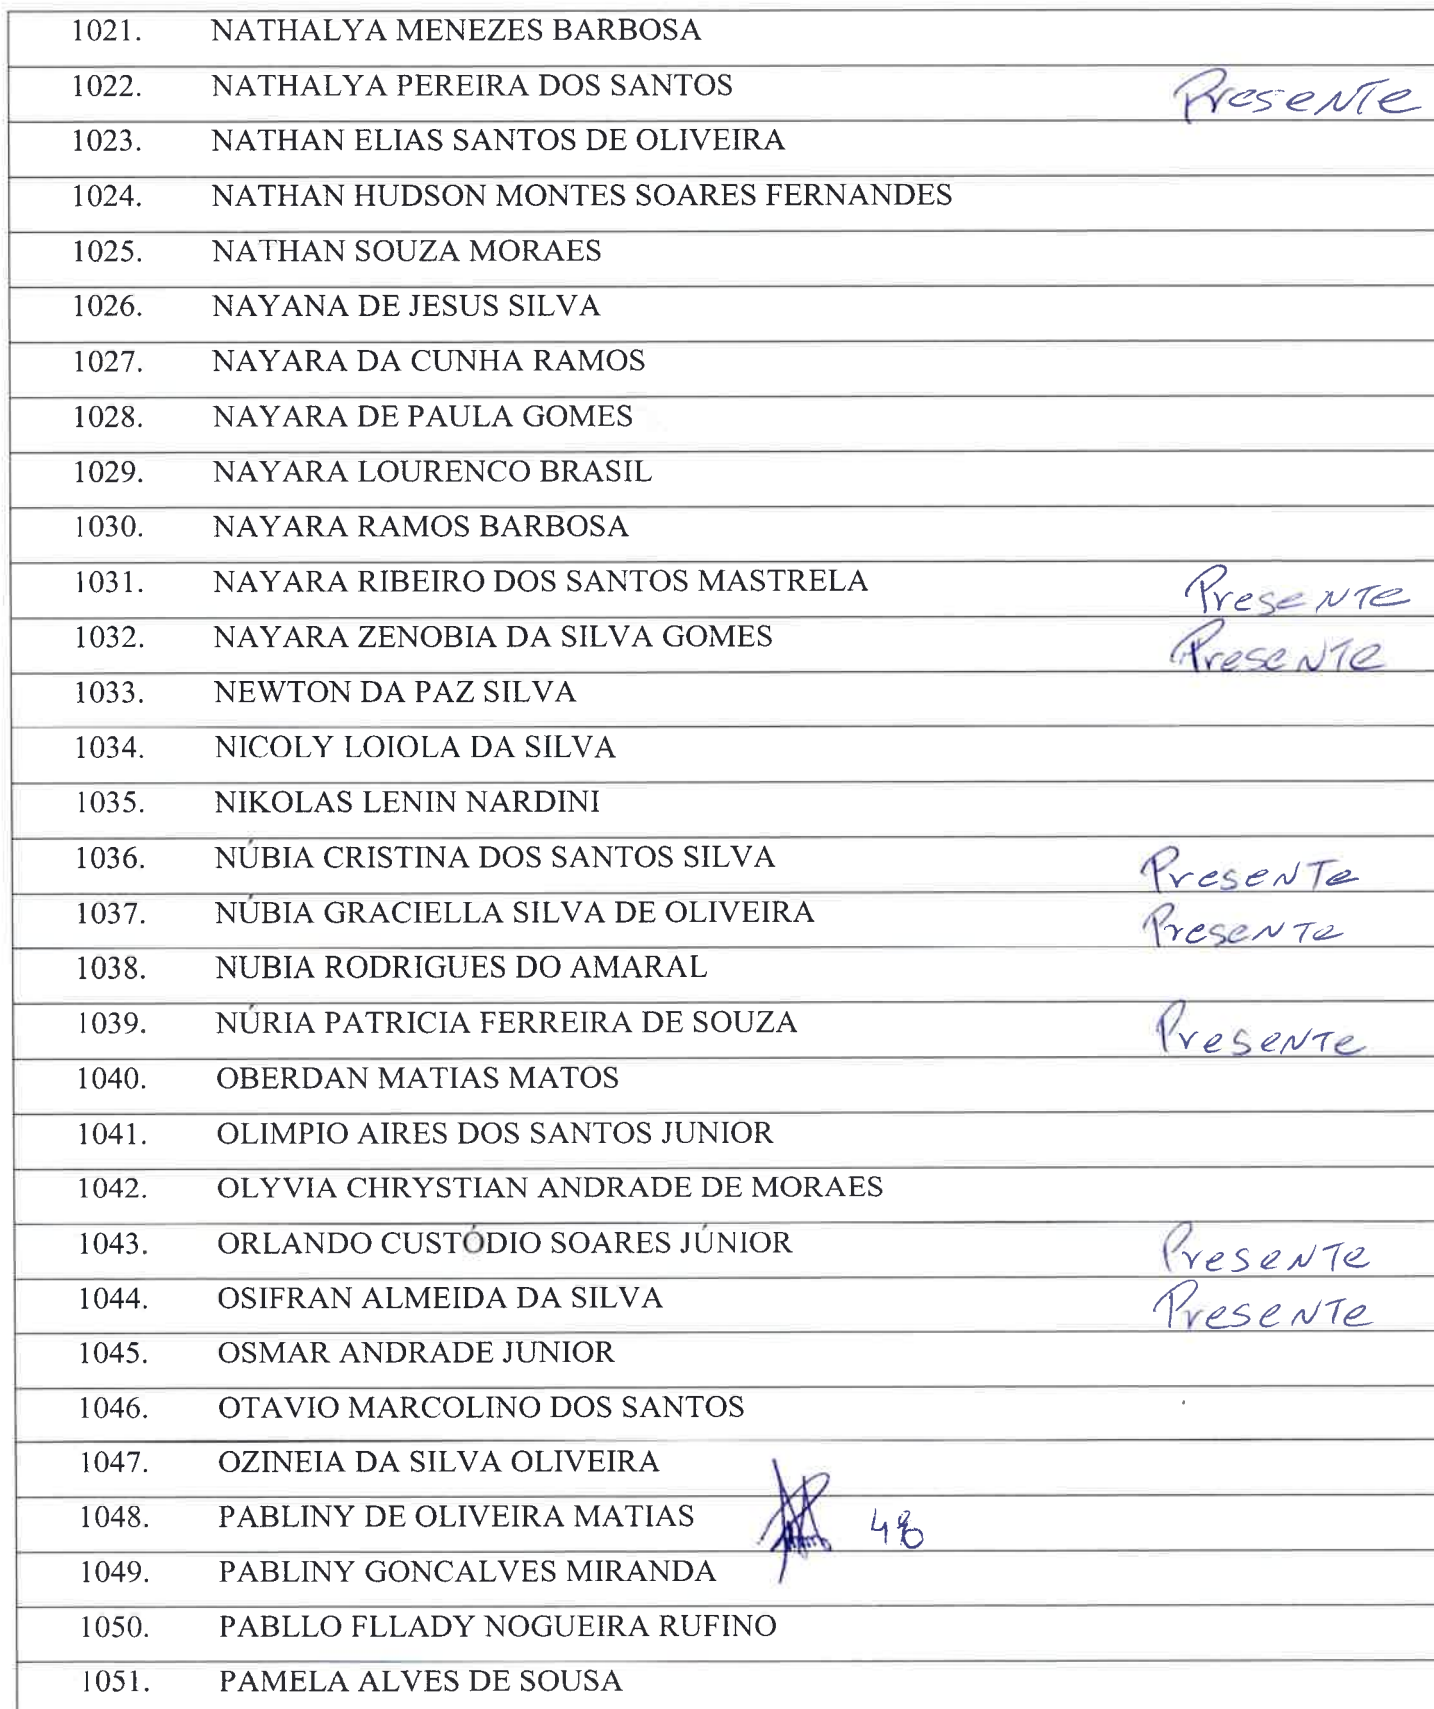 1021. NATHALYA MENEZES BARBOSA
1022. NATHALYA PEREIRA DOS SANTOS Presente
1023. NATHAN ELIAS SANTOS DE OLIVEIRA
1024. NATHAN HUDSON MONTES SOARES FERNANDES
1025. NATHAN SOUZA MORAES
1026. NAYANA DE JESUS SILVA
1027. NAYARA DA CUNHA RAMOS
1028. NAYARA DE PAULA GOMES
1029. NAYARA LOURENCO BRASIL
1030. NAYARA RAMOS BARBOSA
1031. NAYARA RIBEIRO DOS SANTOS MASTRELA Presente
1032. NAYARA ZENOBIA DA SILVA GOMES Presente
1033. NEWTON DA PAZ SILVA
1034. NICOLY LOIOLA DA SILVA
1035. NIKOLAS LENIN NARDINI
1036. NÚBIA CRISTINA DOS SANTOS SILVA Presente
1037. NÚBIA GRACIELLA SILVA DE OLIVEIRA Presente
1038. NUBIA RODRIGUES DO AMARAL
1039. NÚRIA PATRICIA FERREIRA DE SOUZA Presente
1040. OBERDAN MATIAS MATOS
1041. OLIMPIO AIRES DOS SANTOS JUNIOR
1042. OLYVIA CHRYSTIAN ANDRADE DE MORAES
1043. ORLANDO CUSTÓDIO SOARES JÚNIOR Presente
1044. OSIFRAN ALMEIDA DA SILVA Presente
1045. OSMAR ANDRADE JUNIOR
1046. OTAVIO MARCOLINO DOS SANTOS
1047. OZINEIA DA SILVA OLIVEIRA
1048. PABLINY DE OLIVEIRA MATIAS
1049. PABLINY GONCALVES MIRANDA
1050. PABLLO FLLADY NOGUEIRA RUFINO
1051. PAMELA ALVES DE SOUSA